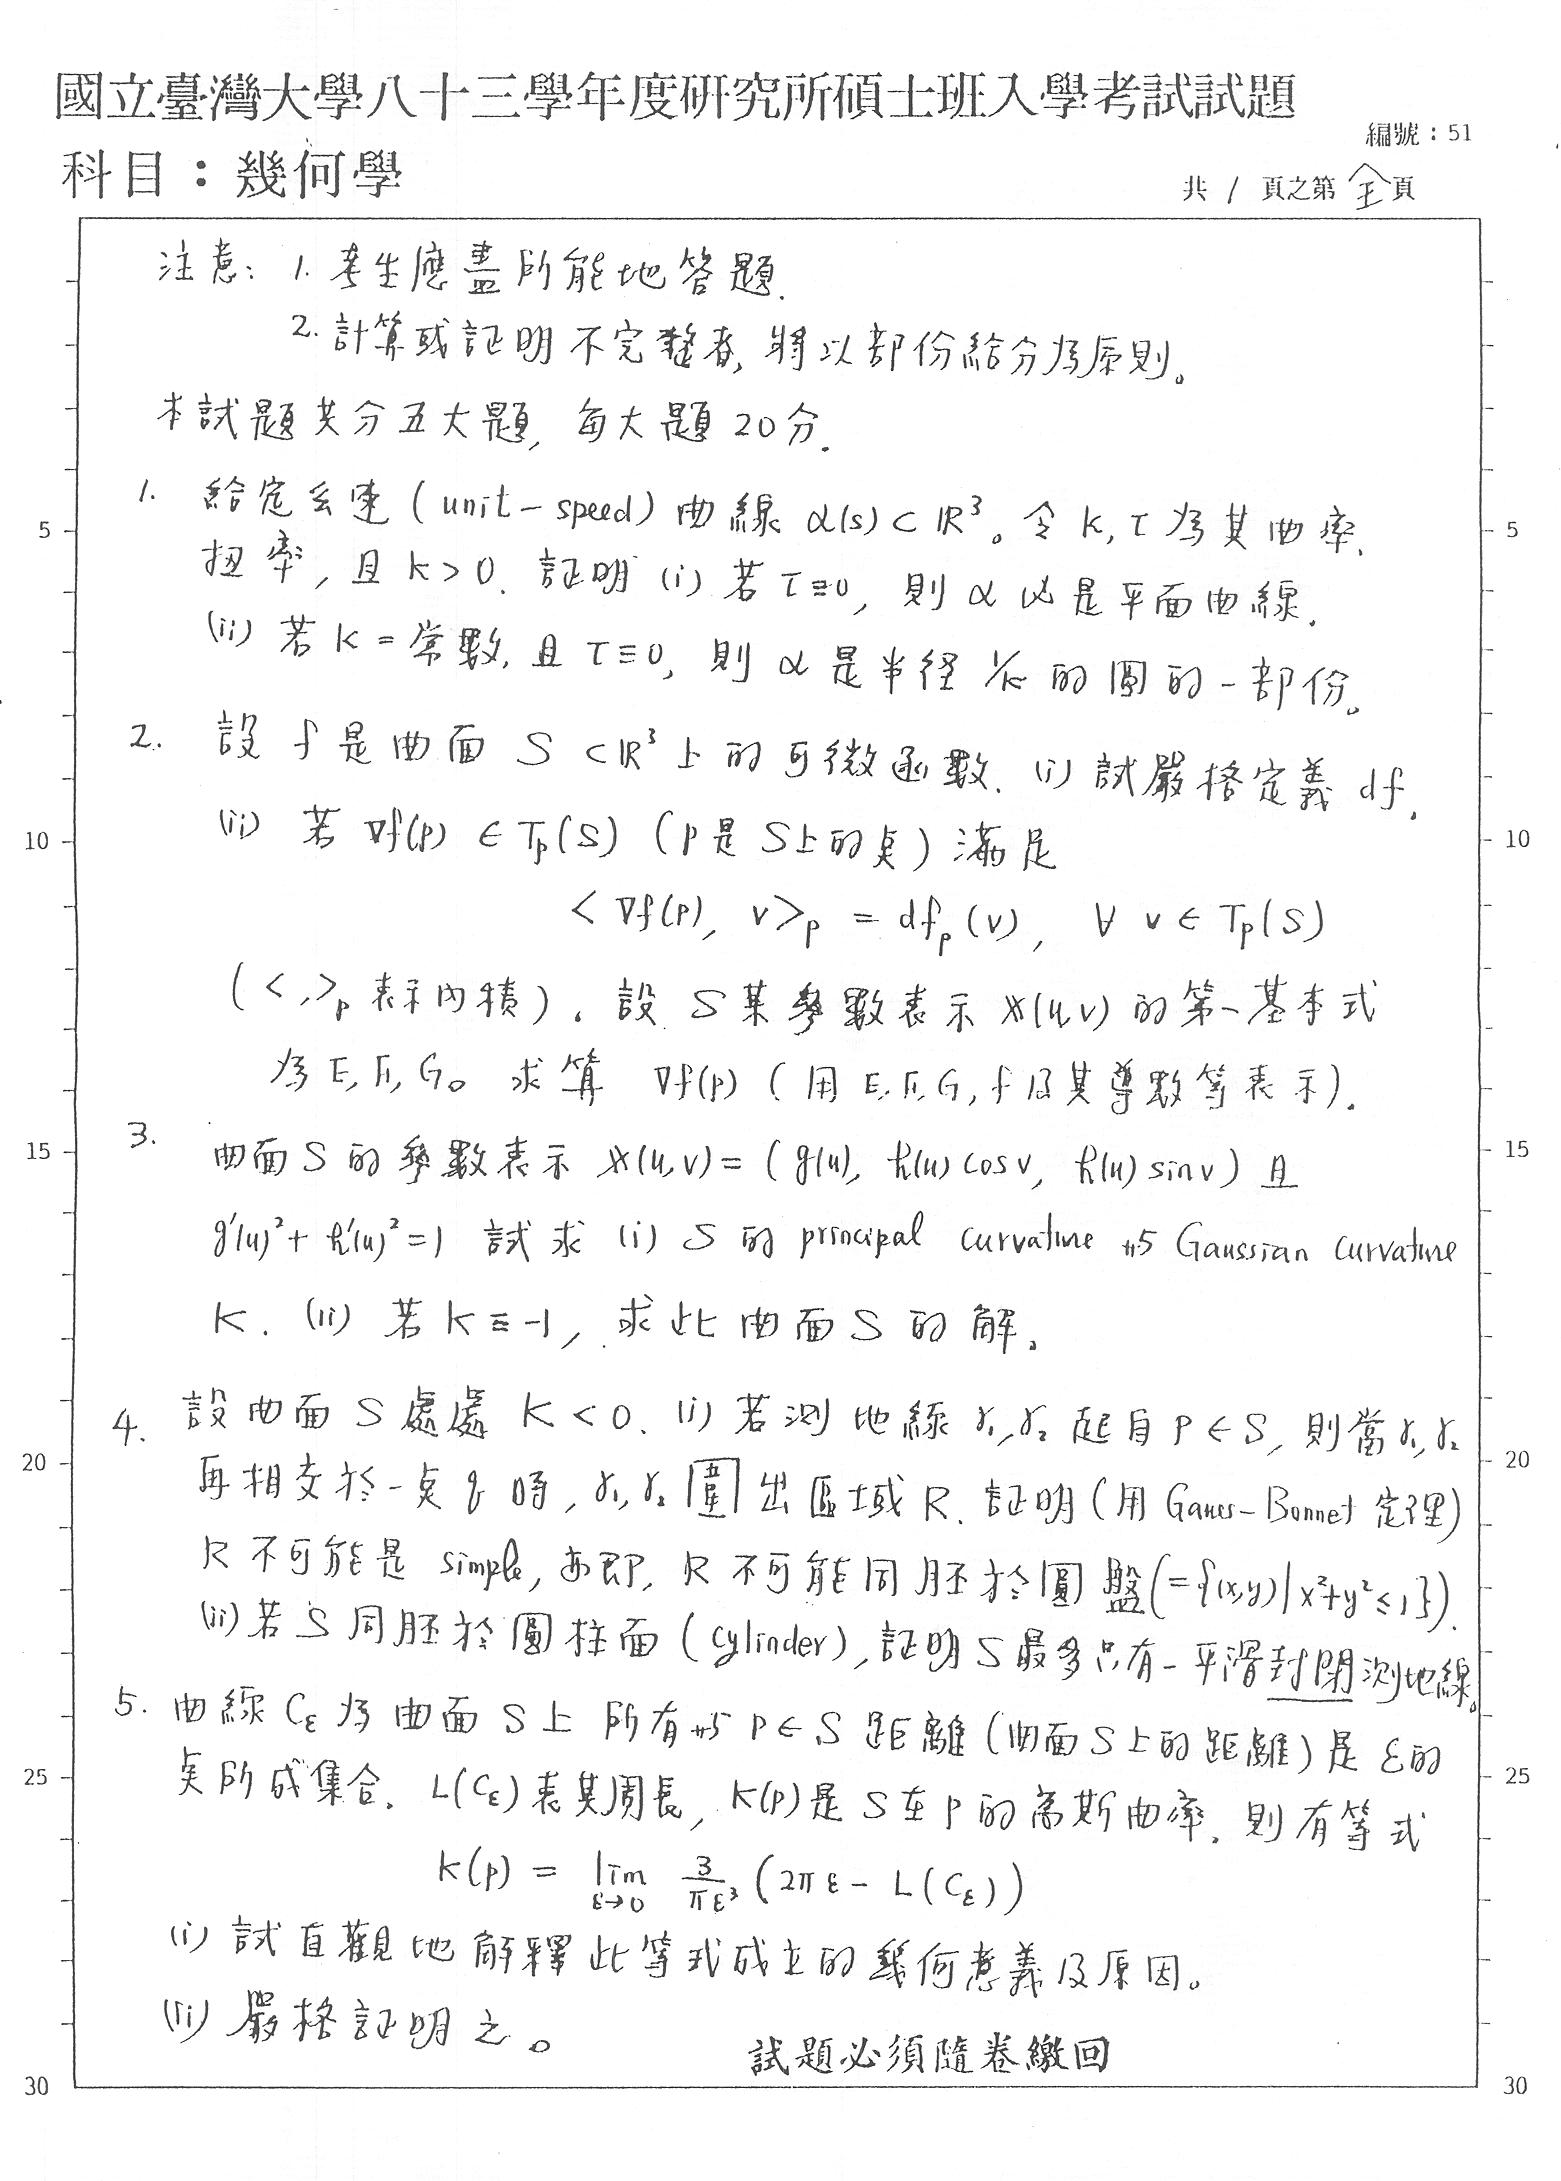 國立臺灣大學八十三學年度研究所碩士班入學考試試題
編號：51
科目：幾何學
共 1 頁之第 全 頁
注意: 1. 考生應盡所能地答題.
2. 計算或証明不完整者, 將以部份給分為原則。
本試題共分五大題, 每大題 20分.
1. 給定么速 (unit-speed) 曲線 α(s) ⊂ ℝ³。令 k, τ 為其曲率、
5 5
扭率, 且 k > 0. 証明 (i) 若 τ≡0, 則 α 必是平面曲線.
(ii) 若 k = 常數, 且 τ≡0, 則 α 是半徑 1/k 的圓的一部份。
2. 設 f 是曲面 S ⊂ ℝ³ 上的可微函數. (i) 試嚴格定義 df.
10 10
(ii) 若 ∇f(p) ∈ Tp(S) (p 是 S 上的點) 滿足
< ∇f(p), v >p = dfp(v), ∀ v ∈ Tp(S)
( < , >p 表示內積). 設 S 某參數表示 𝕏(u,v) 的第一基本式
為 E, F, G。 求算 ∇f(p) ( 用 E, F, G, f 及其導數等表示).
15 15
3. 曲面 S 的參數表示 𝕏(u,v) = ( g(u), h(u) cos v, h(u) sin v ) 且
g'(u)² + h'(u)² = 1 試求 (i) S 的 principal curvature 與 Gaussian curvature
K. (ii) 若 K ≡ -1, 求此曲面 S 的解。
4. 設曲面 S 處處 K < 0. (i) 若測地線 γ₁, γ₂ 起自 p ∈ S, 則當 γ₁, γ₂
20 20
再相交於一點 q 時, γ₁, γ₂ 圍出區域 R. 証明 (用 Gauss-Bonnet 定理)
R 不可能是 simple, 亦即, R 不可能同胚於圓盤 (= {(x,y) | x²+y² ≤ 1}).
(ii) 若 S 同胚於圓柱面 (cylinder), 証明 S 最多只有一平滑封閉測地線。
5. 曲線 Cε 為曲面 S 上所有與 p ∈ S 距離 (曲面 S 上的距離) 是 ε 的
25 25
點所成集合. L(Cε) 表其周長, K(p) 是 S 在 p 的高斯曲率. 則有等式
K(p) = lim ε→0 3/πε³ ( 2πε - L(Cε) )
(i) 試直觀地解釋此等式成立的幾何意義及原因。
(ii) 嚴格証明之。
試題必須隨卷繳回
30 30